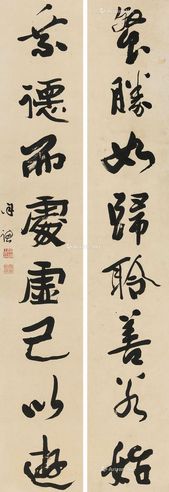 勝如歸聆善若始
乘德而處虛己以遊